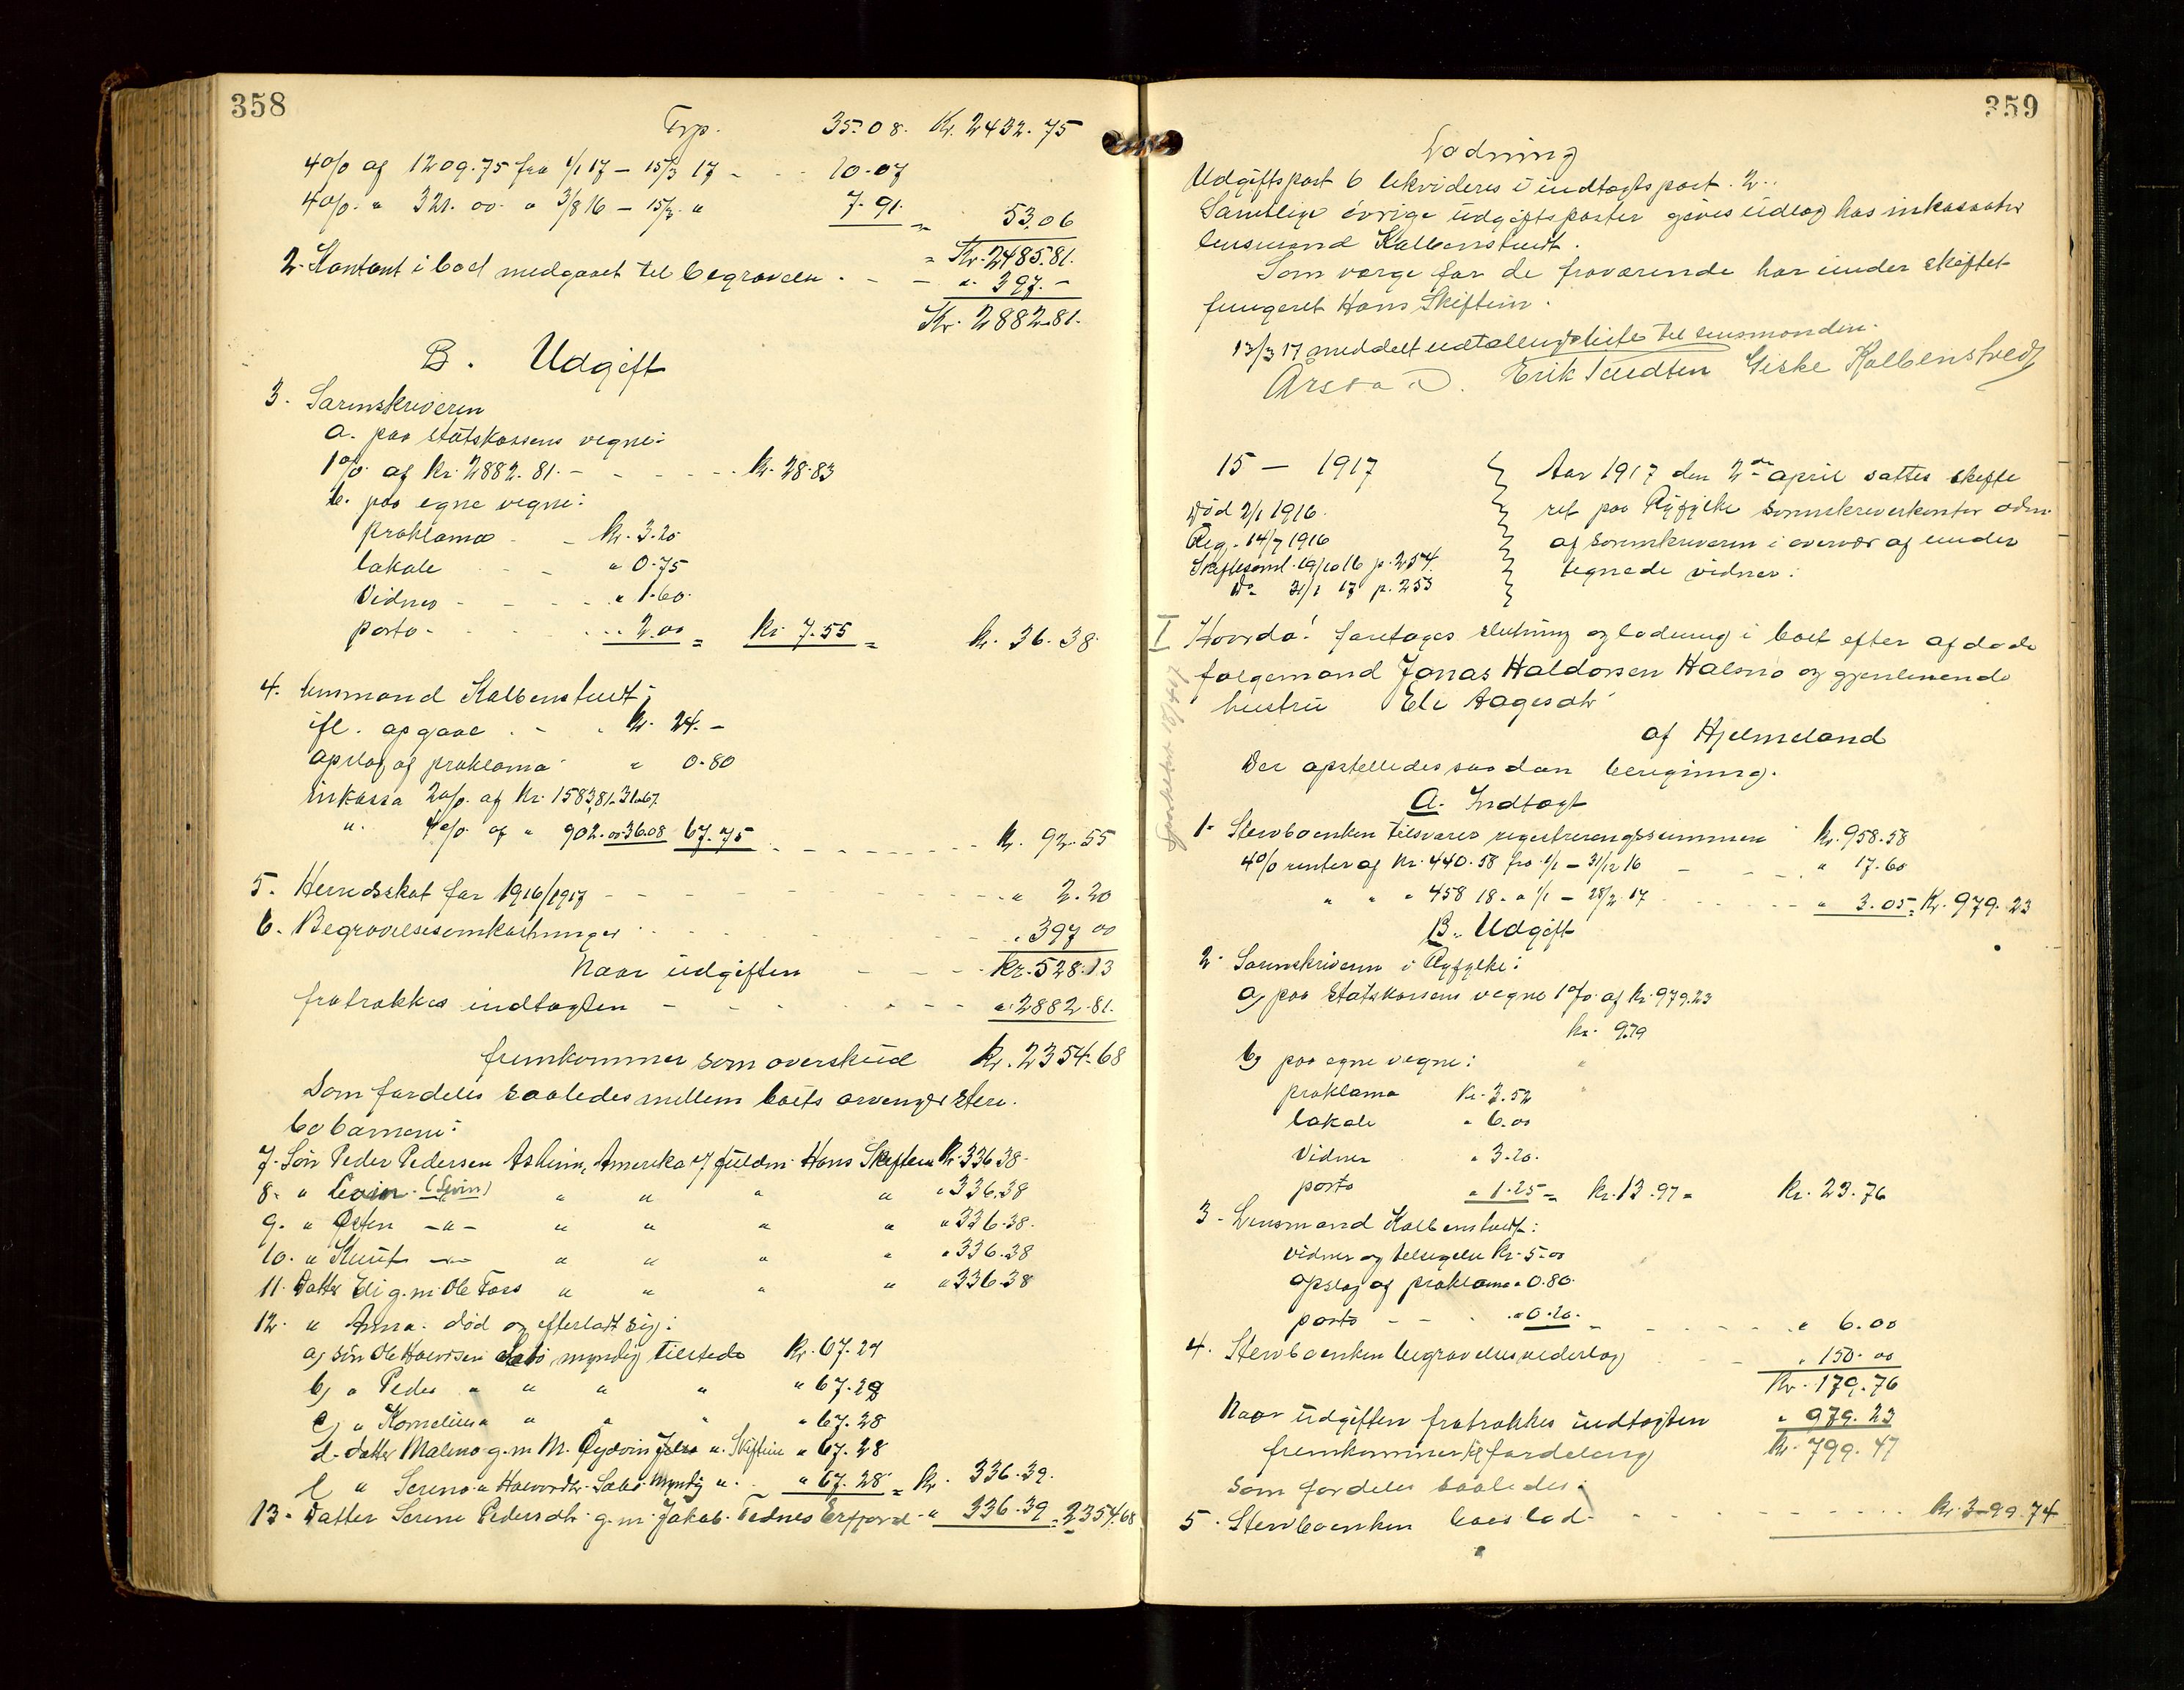 358
Trp. 35.08. Kr. 2432.75
4% af 1209.75 fra 1/1 17 - 15/3 17 - - - 10.07
4%. " 321.00. " 3/8 16 - 15/3. " 7.91. = 53.06
= Kr. 2485.81.
2. Kontant i boet medgaaet til begravelse . - - ". 397.-
Kr. 2882.81.
B. Udgift
3. Sorenskriveren
a. paa statskassens vegne:
1% af Kr. 2882.81. - - - - - kr. 28.83
b. paa egne vegne:
proklama - - kr. 3.20
lokale - - " 0.75
Vidner - - - - " 1.60.
porto - - - - - 2.00 = kr 7.55 = kr. 36.38.
4. lensmand Kolbenstvedt;
ifl. opgave . - . kr. 24.-
opslag af proklama " 0.80
inkasso 2% af Kr. 1583,81. 31.67
". 4% af " 902.00 36.08 67.75 - - - - - - kr. 92.55
5. Herredsskat for 1916/1917 - - - - - - " 2.20
6. Begravelsesomkostninger - - - - - " 397 00
Naar udgiften - - - Kr. 528.13
fratrækkes indtægten - - - - - - ". 2882.81.
fremkommer som overskud Kr. 2354.68
Som fordeles saaledes mellem boets arvinger
bobarnene:
7. Søn Peder Pedersen Asheim, Amerika v/ fuldm. Hans Skiftun Kr. 336.38-
8. " (Sven) " " " " " 336.38
9. " Østen -"- " " " " " 336.38.
10. " Knut -"- " " " " " 336.38
11. Datter Eli g.m. Ole Foss " " " " " 336.38
12. " Anna. død og efterlatt sig:
a) søn Ole Halvorsen myndig tilstede Kr. 67.27
b) " Peder " " " " " 67.28
c) " Kornelius " " " " " 67.28
d. datter Malene g.m. M. Øydvin Jelsa v. Skiftun " 67.28
e " Serena " Halvordtr. Myndig ". " 67.28 = Kr. 336.39.
13. Datter Serine Pedersdtr. g.m. Jakob Tednes Erfjord - " 336.39 = 2354.68
359
Lodning
Udgiftspost 6 likvideres i indtægtspost. 2..
Samtlige øvrige udgiftsposter gives udlæg hos inkassator
lensmand Kolbenstvedt.
Som verge for de fraværende har under skiftet
fungeret Hans Skiftun.
13/3 17 meddelt utællingsliste til lensmanden.
Erik Tuedten Giske Kolbenstvedt
15 - 1917
Død 2/1 1916.
Reg. 14/7 1916
Skiftesaml. 19/10 16 p. 254.
Do 31/1 17 p. 253
Aar 1917 den 2den april sattes skifte
ret paa Ryfylke sorenskriverkontor adm.
af sorenskriveren i overvær af under
tegnede vidner:
I Hvorda! foretages slutning og lodning i boet efter afdøde
følgemand Jonas Haldorsen Halsne og gjenlevende
hustru Eli Aagesdtr
af Hjelmeland
Der opstilledes saadan beregning.
A. Indtægt
1. Stervboenken tilsvarer registreringssummen Kr. 958.58
4% renter af Kr. 440.58 fra 1/1 - 31/12 16 - - - " 17.60
" " " 458 18. " 1/1 - 28/2. 17 - - - - " 3.05 = Kr. 979.23
B. Udgift
2. Sorenskriveren i Ryfylke:
a) paa Statskassens vegne 1% af Kr. 979.23
kr. 9.79
b) paa egne vegne:
proklama Kr. 3.52
lokale " 6.00
Vidner " 3.20.
porto " 1.25 = Kr. 13.97 = Kr. 23.76
3. Lensmand Kolbenstvedt:
vidner og tilsigelse Kr. 5.00
opslag af proklama " 0.80.
porto - - . " 0.20. = - - - - " 6.00
4. Stervboenken begravelsesvederlag - - " 150.00
Kr. 179.76
Naar udgiften fratrækkes indtægten " 979.23
fremkommer til fordeling Kr. 799.47
som fordeles saaledes:
5. Stervboenken boeslod - - - - - kr. 399.74